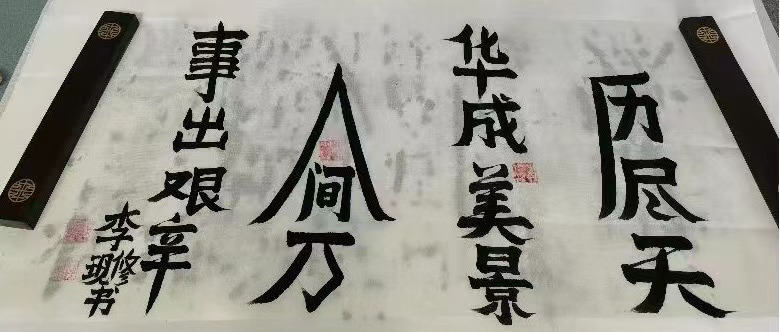 历尽天
华成美景
人间万
事出艰辛
李修现书